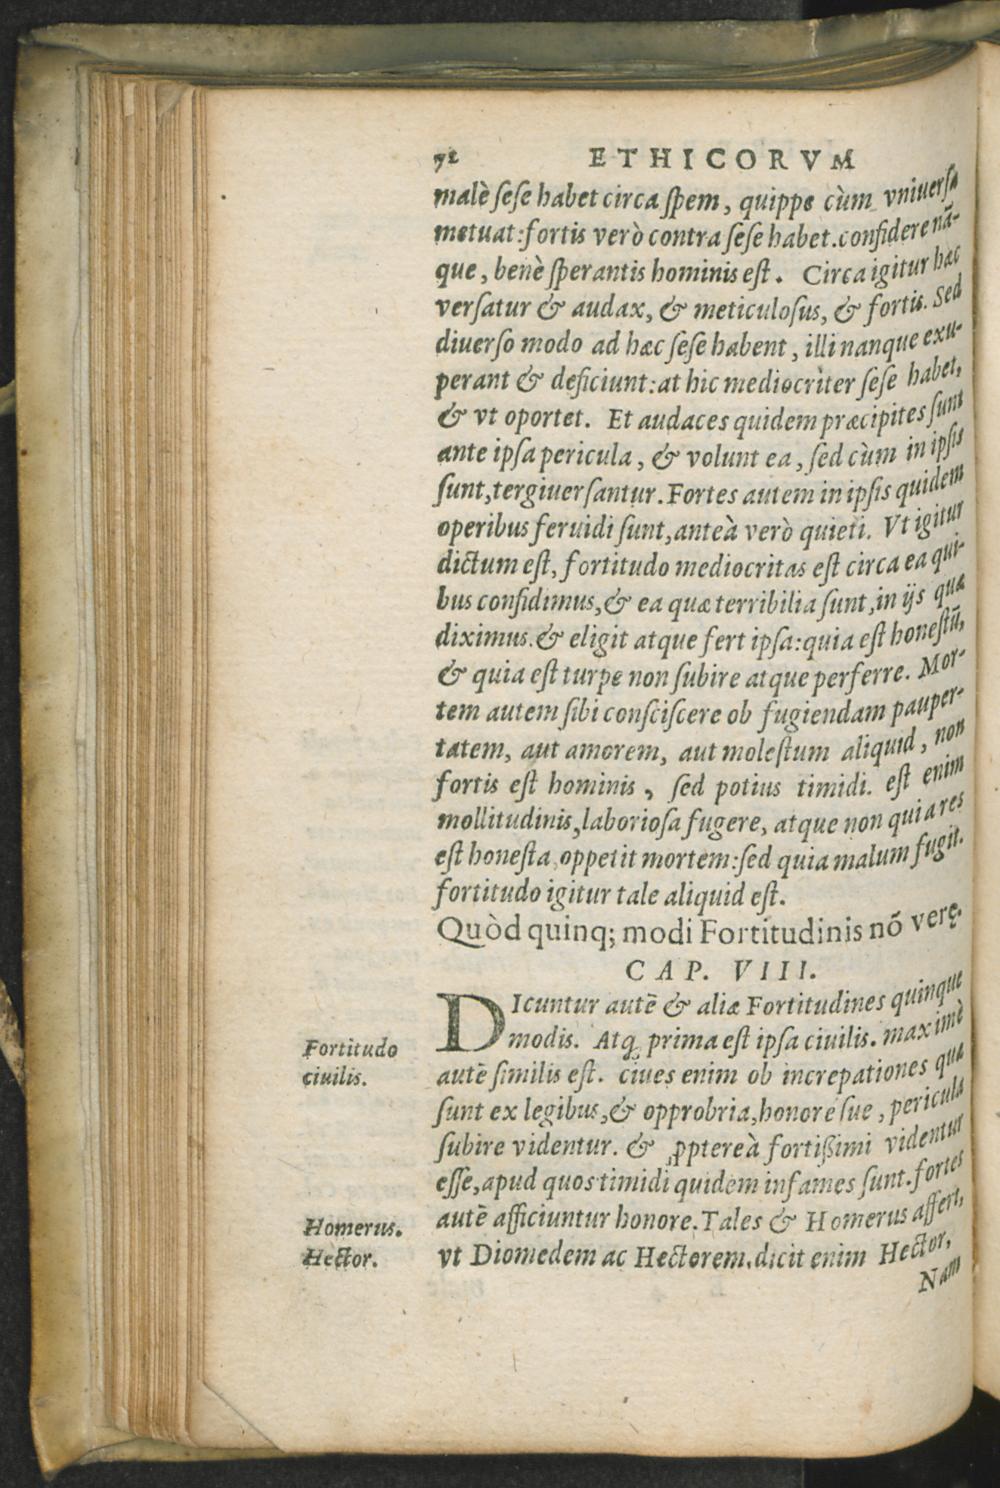 72 ETHICORVM
malè sese habet circa spem, quippe cùm vniuersa
metuat: fortis verò contra sese habet. confidere nã-
que, benè sperantis hominis est. Circa igitur hæc
versatur & audax, & meticulosus, & fortis. Sed
diuerso modo ad hæc sese habent, illi nanque exu-
perant & deficiunt: at hic mediocriter sese habet,
& vt oportet. Et audaces quidem præcipites sunt
ante ipsa pericula, & volunt ea, sed cùm in ipsis
sunt, tergiuersantur. Fortes autem in ipsis quidem
operibus feruidi sunt, anteà verò quieti. Vt igitur
dictum est, fortitudo mediocritas est circa ea qui-
bus confidimus, & ea quæ terribilia sunt, in ijs quæ
diximus. & eligit atque fert ipsa: quia est honestũ,
& quia est turpe non subire atque perferre. Mor-
tem autem sibi consciscere ob fugiendam pauper-
tatem, aut amorem, aut molestum aliquid, non
fortis est hominis, sed potius timidi. est enim
mollitudinis, laboriosa fugere, atque non quia res
est honesta oppetit mortem: sed quia malum fugit.
fortitudo igitur tale aliquid est.
Quòd quinq; modi Fortitudinis nõ verę.
CAP. VIII.
DIcuntur autẽ & aliæ Fortitudines quinque
modis. Atq; prima est ipsa ciuilis. maximè
Fortitudo
ciuilis.
autẽ similis est. ciues enim ob increpationes quæ
sunt ex legibus, & opprobria, honorésue, pericula
subire videntur. & ꝓptereà fortißimi videntur
esse, apud quos timidi quidem infames sunt. fortes
autẽ afficiuntur honore. Tales & Homerus affert,
Homerus.
Hector.
vt Diomedem ac Hectorem. dicit enim Hector,
Nam